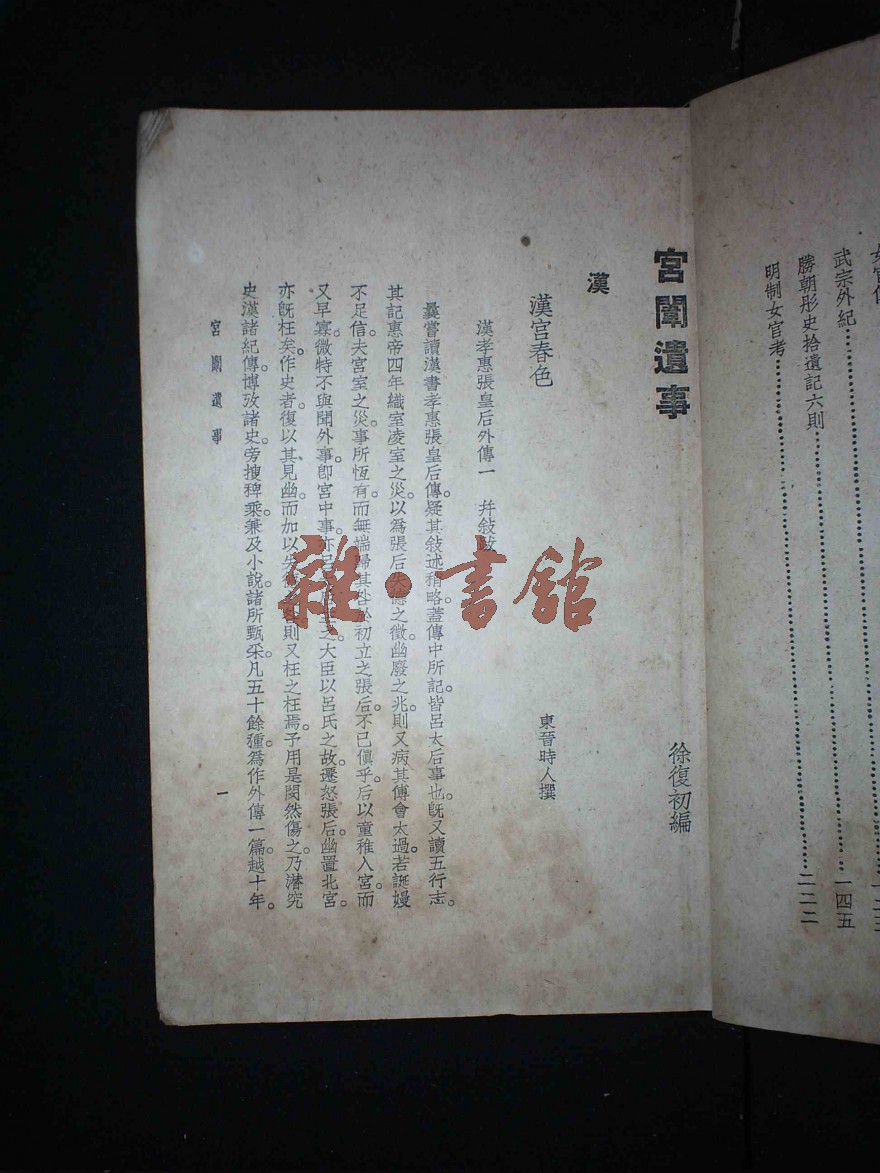 女官傳…………一二三
武宗外紀…………一四五
勝朝彤史拾遺記六則…………二二二
明制女官考…………
宮闈遺事
徐復初編
漢
漢宮春色
東晉時人撰
漢孝惠張皇后外傳一 幷敍
曩嘗讀漢書孝惠張皇后傳。疑其敍述稍略。蓋傳中所記。皆呂太后事也。旣又讀五行志。
其記惠帝四年織室凌室之災。以爲張后失德之徵。幽廢之兆。則又病其傳會太過。若誕嫚
不足信。夫宮室之災。事所恆有。而無端歸其咎於初立之張后。不已愼乎。后以童稚入宮。而
又早寡。微特不與聞外事。卽宮中事。亦呂 之大臣以呂氏之故。遷怒張后。幽置北宮。
亦旣枉矣。作史者。復以其見幽。而加以失德 則又枉之枉焉。予用是閔然傷之。乃潛究
史漢諸紀傳。博攷諸史。旁搜稗乘。兼及小說。諸所甄采。凡五十餘種。爲作外傳一篇。越十年。
宮闈遺事
一
雜·書館